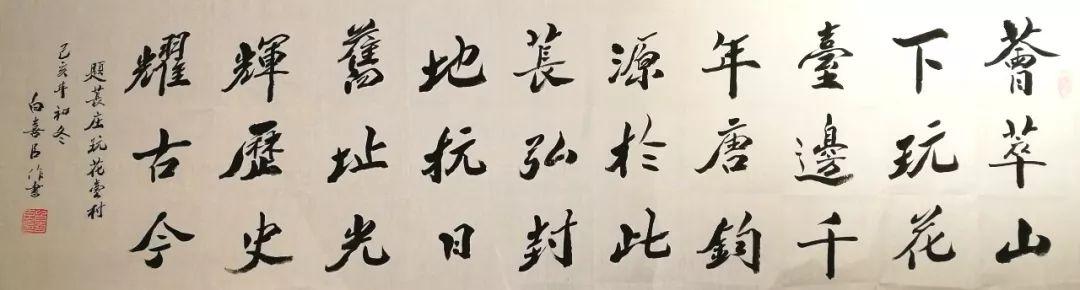 薈萃山
下玩花
臺邊千
年唐鈞
源於此
萇弘封
地抗日
舊址光
輝歷史
耀古今
題萇庄玩花臺村
己亥年初冬
白喜作書